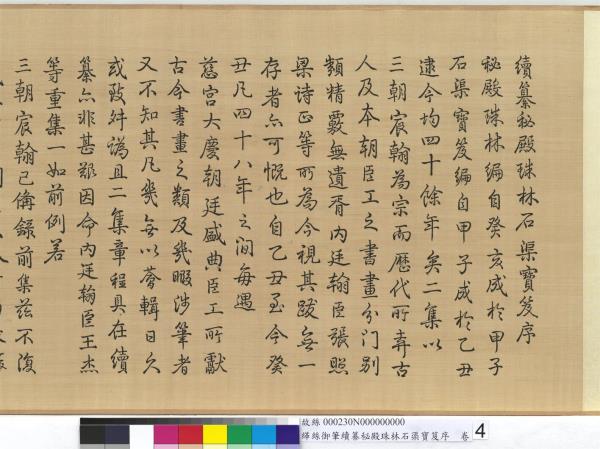 續纂秘殿珠林石渠寶笈序
秘殿珠林編自癸亥成於甲子
石渠寶笈編自甲子成於乙丑
逮今均四十餘年矣二集以
三朝宸翰為宗而歷代所弆古
人及本朝臣工之書畫分門別
類精覈無遺胥內廷翰臣張照
梁诗正等所為今視其跋無一
存者亦可慨也自乙丑至今癸
丑凡四十八年之間每遇
慈宮大慶朝廷盛典臣工所獻
古今書畫之類及幾暇涉筆者
又不知其凡幾無以薈輯日久
或致舛譌且二集章程具在續
纂亦非甚艱因命內廷翰臣王杰
等重集一如前例若
三朝宸翰已俻錄前集茲不復
故絲 000230N000000000
緙絲御筆續纂秘殿珠林石渠寶笈序 卷
4